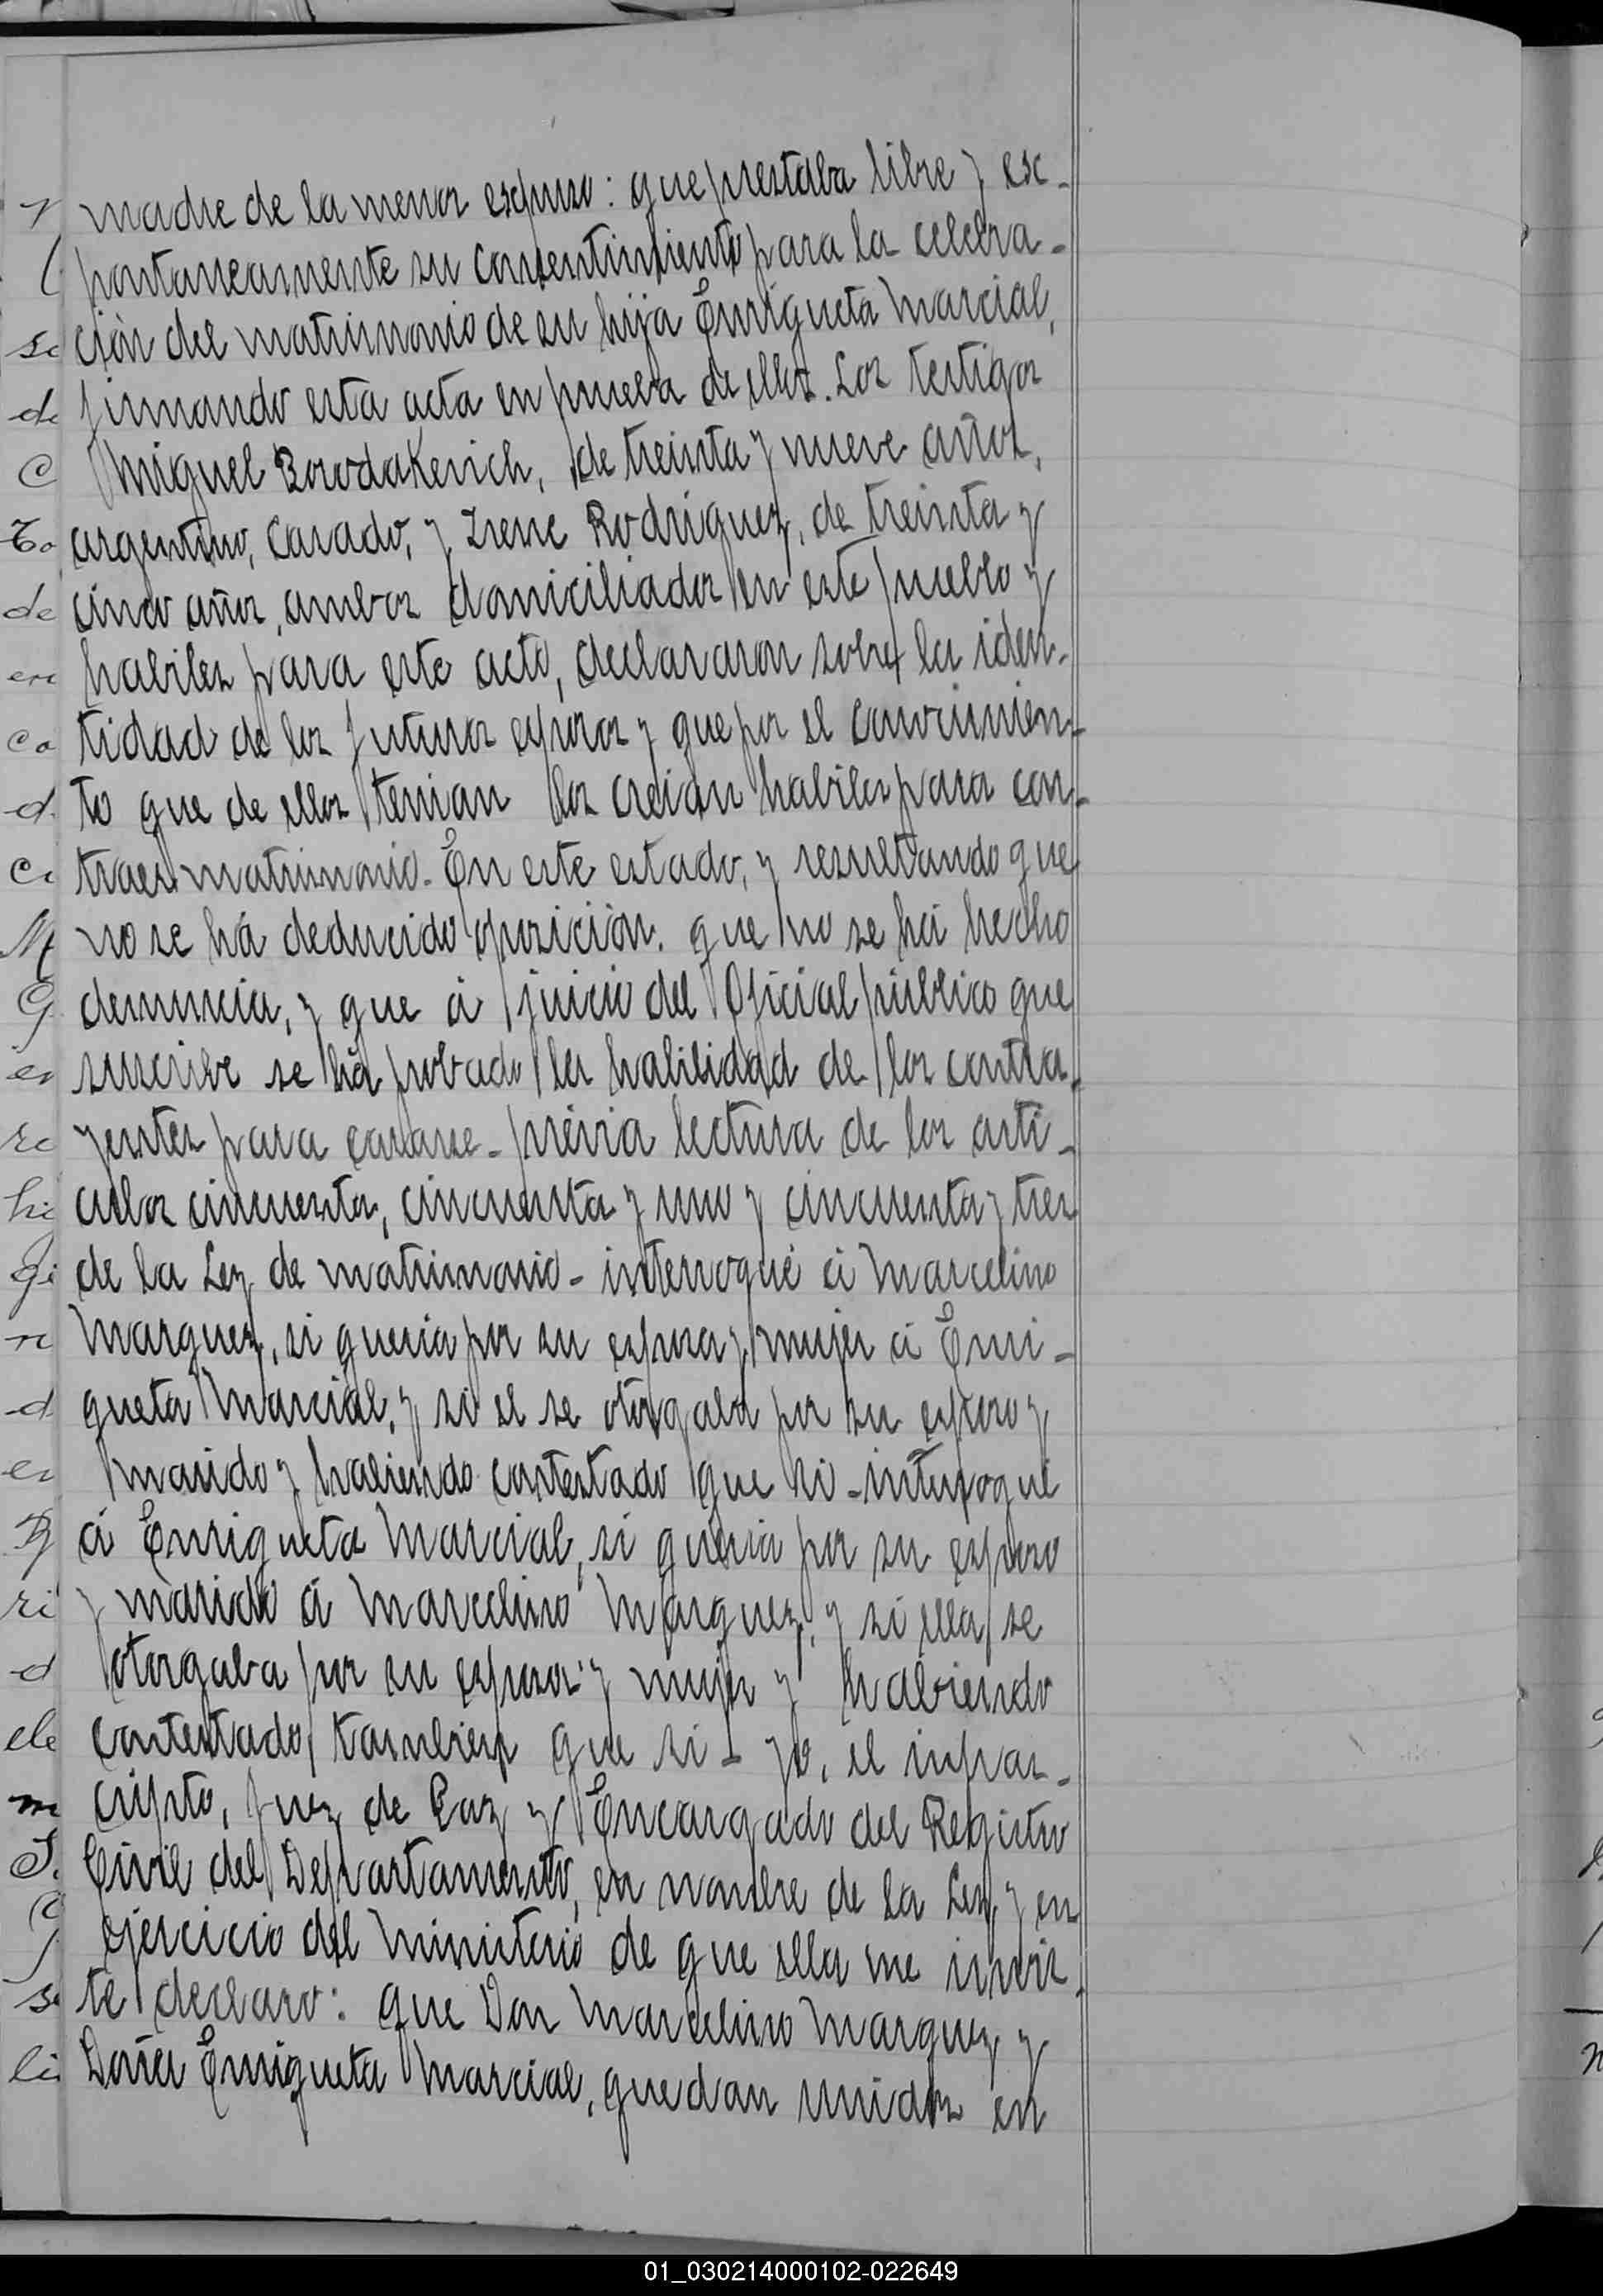 madre de la menor espuso: que prestaba libre y es-
pontaneamente su consentimiento para la celebra-
ción del matrimonio de su hija Enriqueta Marcial,
firmando esta acta en prueba de ello. Los testigos
Miguel Borodakevich, de treinta y nueve años,
argentino, casado, y Irene Rodriguez, de treinta y
cinco años, ambos domiciliados en este pueblo y
habiles para este acto, declararon sobre la iden-
tidad de los futuros esposos y que por el conocimien-
to que de ellos tenian los creian habiles para con-
traer matrimonio. En este estado, y resultando que
no se há deducido oposición. que no se há hecho
denuncia, y que á juicio del Oficial público que
suscribe se há probado la habilidad de los contra-
yentes para casarse - prévia lectura de los artí-
culos cincuenta, cincuenta y uno y cincuenta y tres
de la Ley de matrimonio - interrogué á Marcelino
Marquez, si queria por su esposa y mujer á Enri-
queta Marcial, y si el se otorgaba por su esposo y
marido y habiendo contestado que si - interrogué
á Enriqueta Marcial, si queria por su esposo
y marido á Marcelino Marquez, y si ella se
otorgaba por su esposa y mujer y habiendo
contestado tambien que si - yo, el infras-
cripto, Juez de Paz y Encargado del Registro
Civil del Departamento, en nombre de la Ley y en
ejercicio del ministerio de que ella me invis-
te declaro: que Don Marcelino Marquez y
Doña Enriqueta Marcial, quedan unidos en
01_030214000102-022649